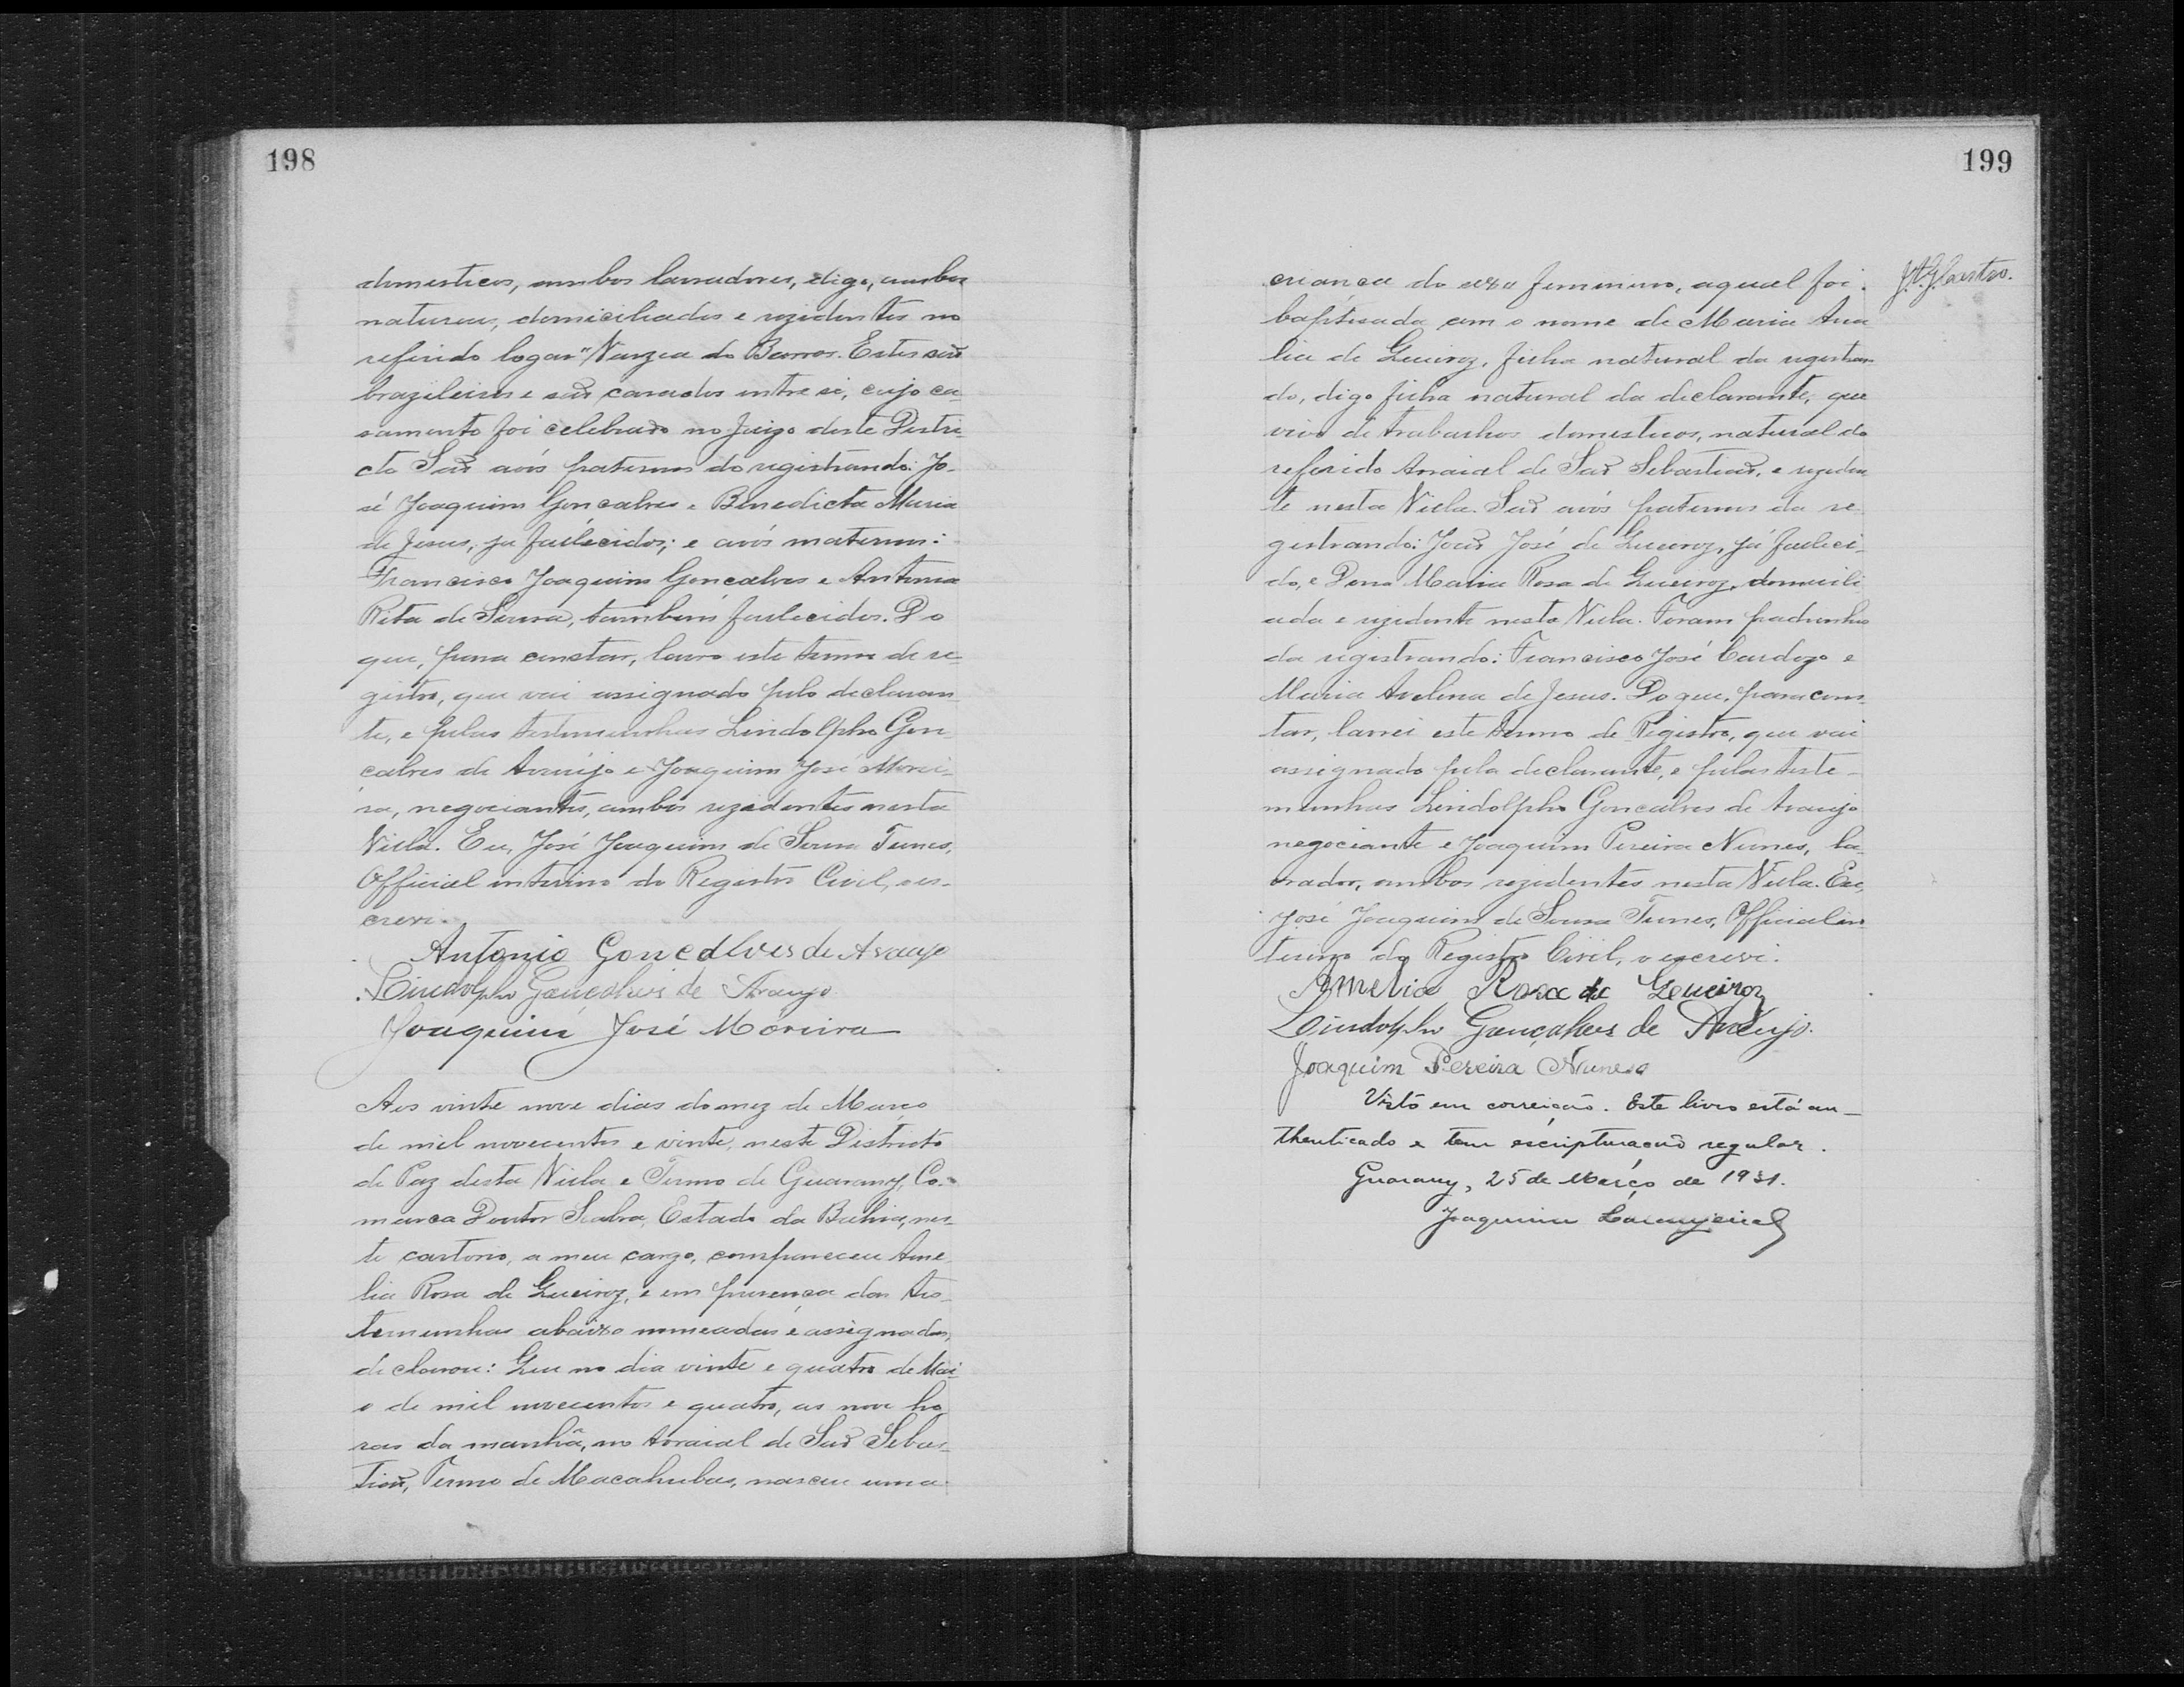 198
domesticos, ambos lavradores, digo, ambos
naturaes, domiciliados e rezidentes no
referido logar "Varzea do Barros. Estes são
brazileiros e são casados entre si, cujo ca-
samento foi celebrado no Juizo deste Distri-
cto. São avós paternos do registrando: Jo-
sé Joaquim Gonçalves e Benedicta Maria
de Jesus, ja fallecidos; e avós maternos:
Francisco Joaquim Gonçalves e Antonia
Rita de Souza, tambem fallecidos. Do
que, para constar, lavro este termo de re-
gistro, que vai assignado pelo declaran-
te, e pelas testemunhas Lindolpho Gon-
çalves de Araújo e Joaquim José Morei-
ra, negociantes, ambos rezidentes nesta
Villa. Eu, José Joaquim de Souza Tunes,
Official interino do Registro Civil, o es-
crevi.
Antonio Goncalves de Araujo
Lindolpho Gonçalves de Araujo
Joaquim José Moreira
Aos vinte nove dias do mez de Março
de mil novecentos e vinte, neste Districto
de Paz desta Villa e Termo de Guarany, Co-
marca Doutor Seabra, Estado da Bahia, nes-
te cartorio, a meu cargo, compareceu Ame
lia Rosa de Queiroz, e em presença das tes-
temunhas abaixo nomeadas e assignadas,
declarou: Que no dia vinte e quatro de Mai-
o de mil novecentos e quatro, as nove ho
ras da manhã, no Arraial de São Sebas-
tião, Termo de Macahubas, nasceu uma
199
criança do sexo feminino, aqual foi
J. A. J. Castro.
baptisada com o nome de Maria Ana
lia de Queiroz, filha natural da registran
do, digo filha natural da declarante, que
vive de trabalhos domesticos, natural do
referido Arraial de São Sebastião, e reziden
te nesta Villa. São avós paternos da re-
gistrando: João José de Queiroz, já falleci-
do, e Dona Maria Rosa de Queiroz, domicili
ada e rezidente nesta Villa. Foram padrinhos
da registrando: Francisco José Cardozo e
Maria Avelina de Jesus. Do que, para cons-
tar, lavrei este termo de Registro, que vai
assignado pela declarante, e pelas teste-
munhas Lindolpho Gonçalves de Araujo
negociante e Joaquim Pereira Nunes, la-
vrador, ambos rezidentes nesta Villa. Eu,
José Joaquim de Souza Tunes, Official in
terino do Registro Civil, o escrevi.
Amelia Rosa de Queiroz
Lindolpho Gonçalves de Araujo.
Joaquim Pereira Nunes
Visto em correição. Este livro está au-
thenticado e tem escripturação regular.
Guarany, 25 de Março de 1931.
Joaquim Laranjeira